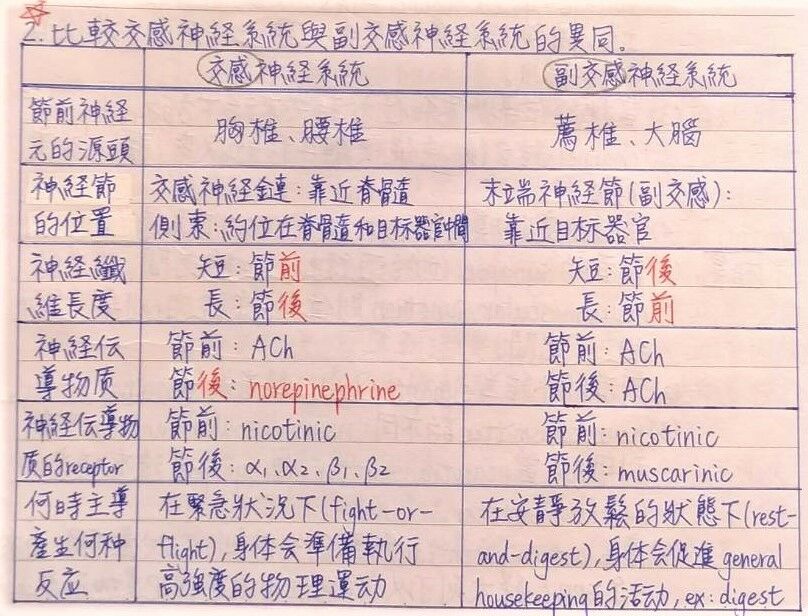 2.比較交感神経系統與副交感神経系統的異同。
交感神経系統 副交感神経系統
節前神経
元的源頭
胸椎、腰椎
薦椎、大腦
神経節
的位置
交感神経鏈:靠近脊髓
側束:約位在脊髓和目标器官中間
末端神経節(副交感):
靠近目标器官
神経纖
維長度
短:節前
長:節後
短:節後
長:節前
神経伝
導物质
節前:ACh
節後:norepinephrine
節前:ACh
節後:ACh
神経伝導物
质的receptor
節前:nicotinic
節後:α1、α2、β1、β2
節前:nicotinic
節後:muscarinic
何時主導
產生何种
反应
在緊急狀況下(fight-or-
flight),身体会準備執行
高強度的物理運动
在安靜放鬆的狀態下(rest-
and-digest),身体会促進general
housekeeping的活动,ex:digest